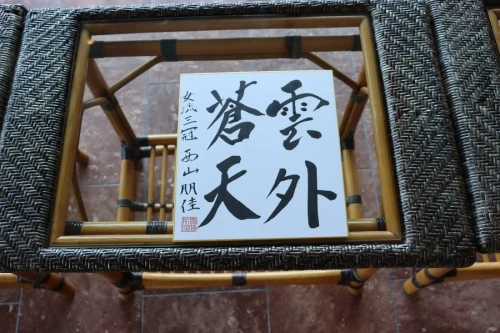 雲外
蒼天
女流三冠 西山朋佳